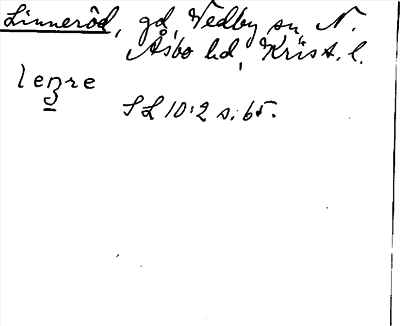 Linneröd, gd, Vedby sn, N.
Åsbo hd, Krist. l.
lenre
SL 10:2 s. 65.